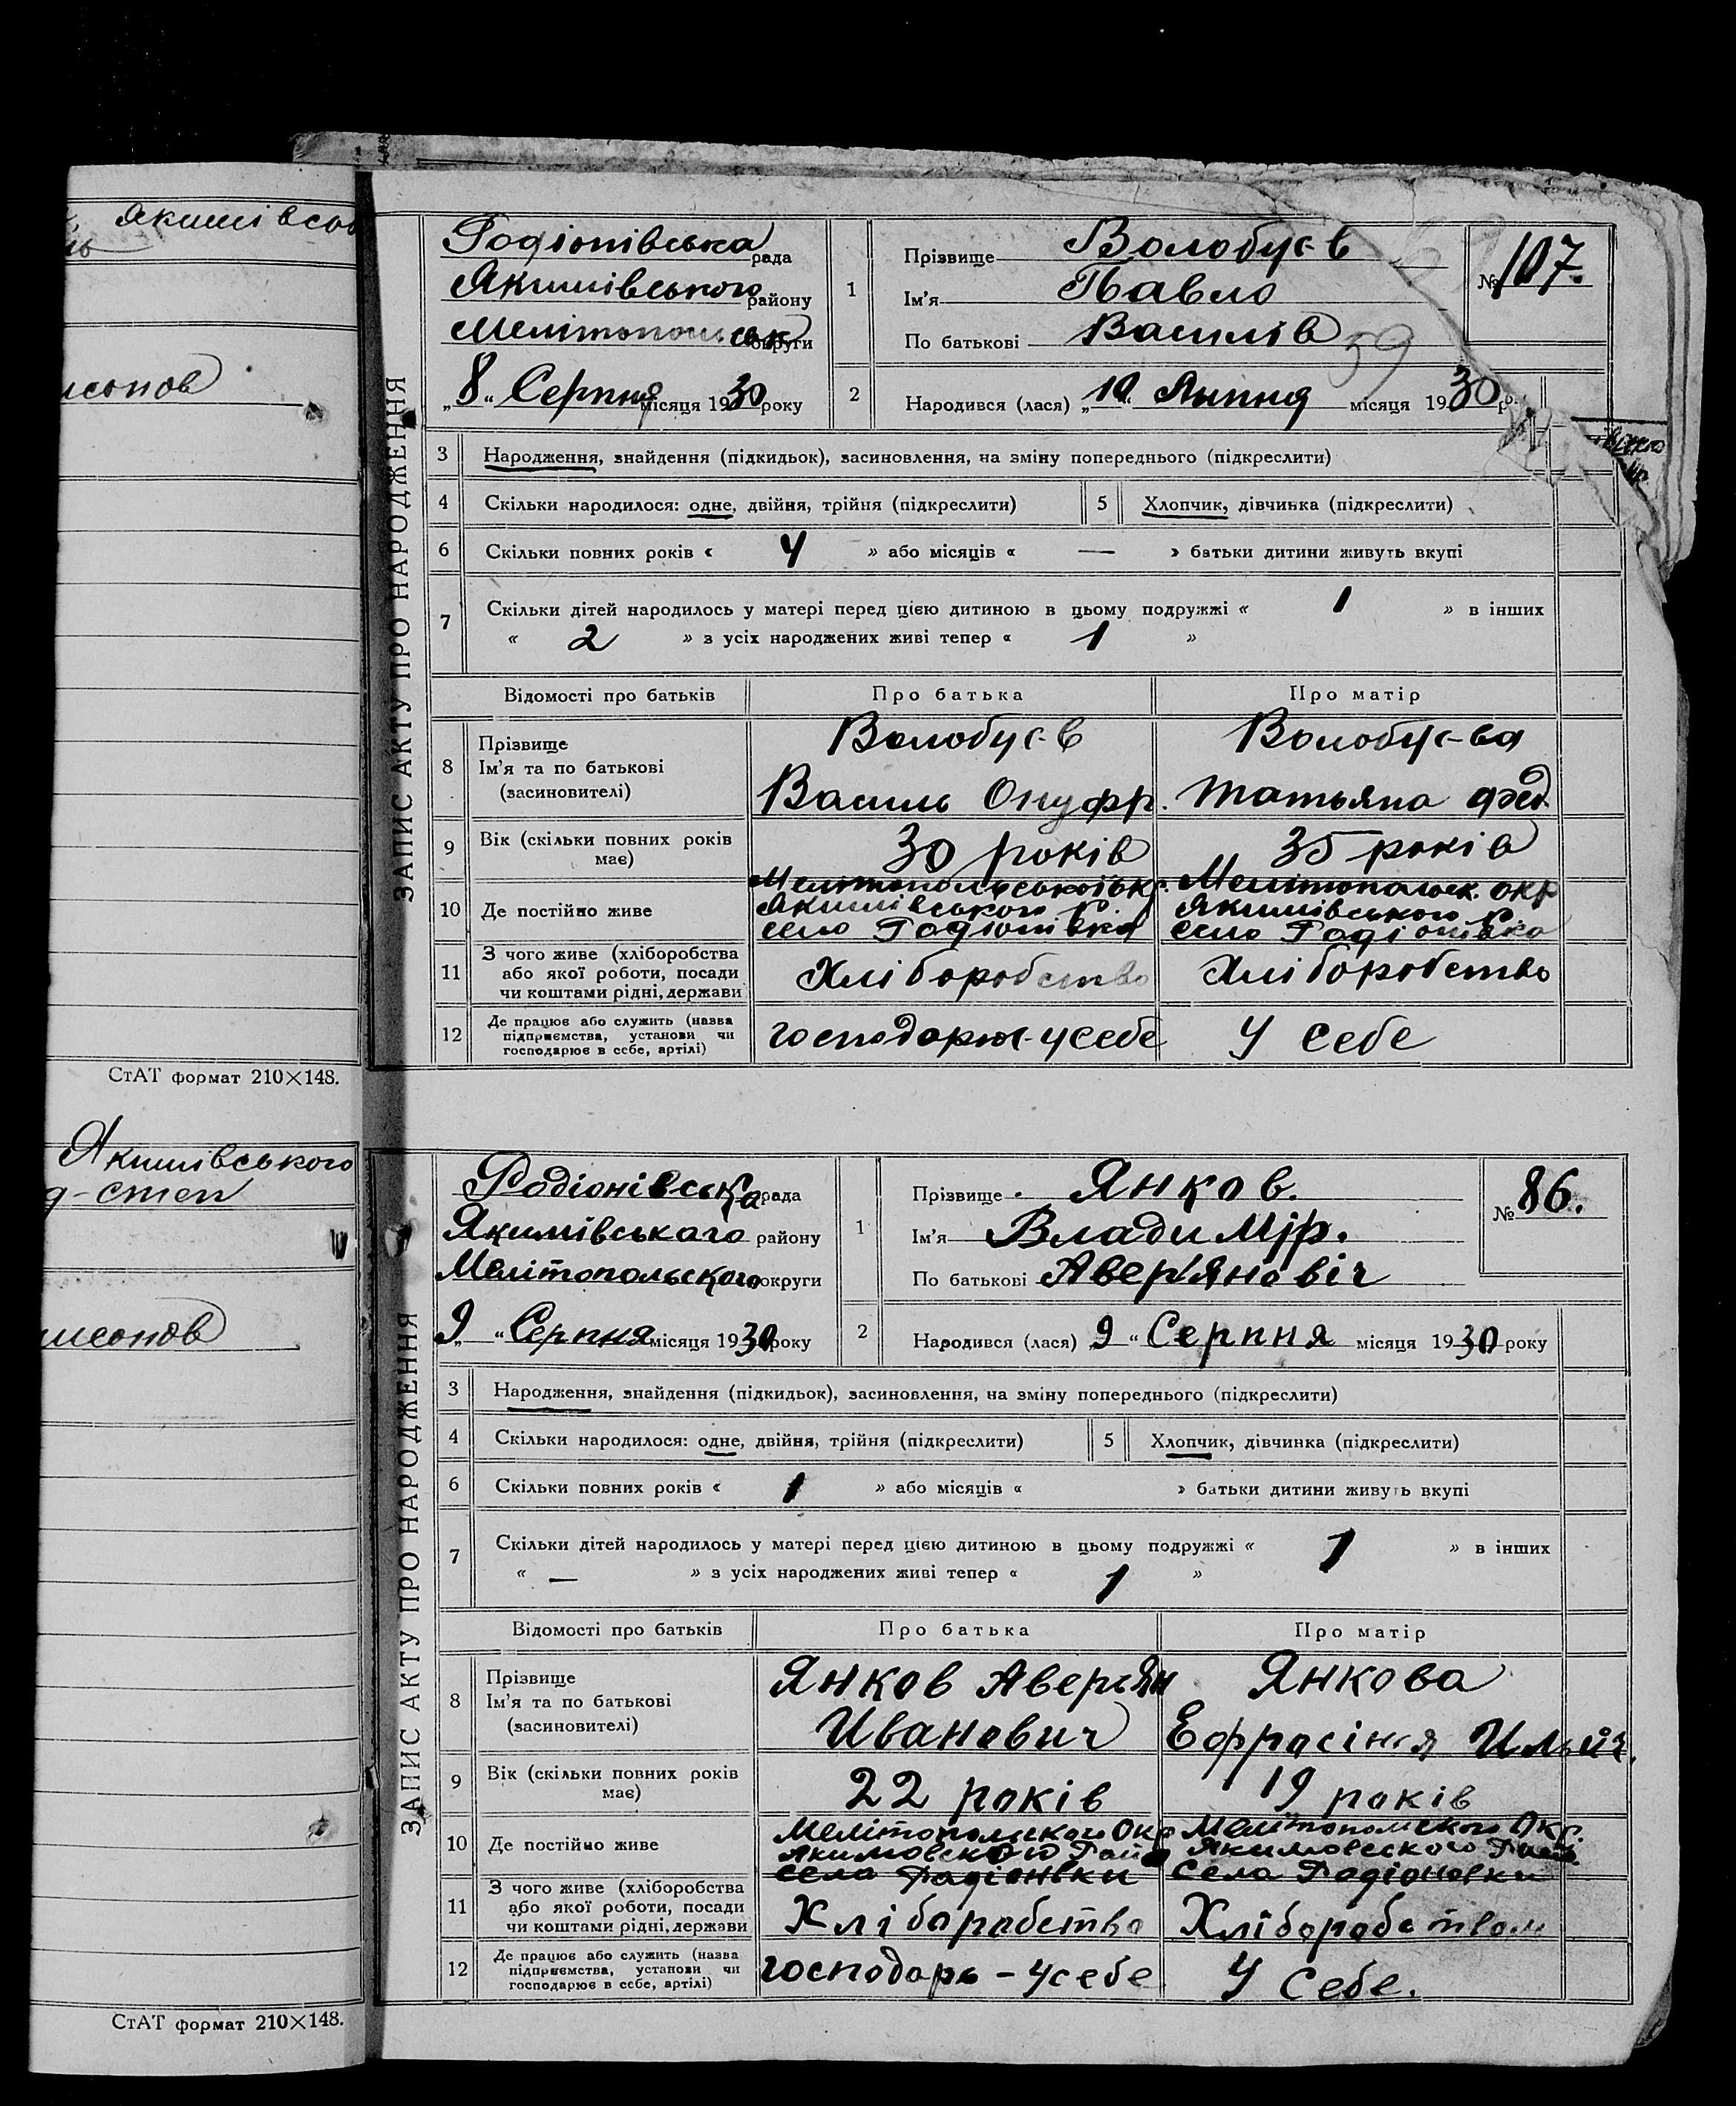 Якимівсько
исонов
СтАТ формат 210×148.
Якимівського
д-степ
исонов
СтАТ формат 210×148.
ЗАПИС АКТУ ПРО НАРОДЖЕННЯ
Родіонівська рада
Якимівського району
Мелітопольськ округи
„8" Серпня місяця 1930 року
1
Прізвище Волобуєв
Ім'я Павло
По батькові Василів
59
№ 107.
2
Народився (лася) „10" Липня місяця 1930 р.
3 Народження, знайдення (підкидьок), засиновлення, на зміну попереднього (підкреслити)
4 Скільки народилося: одне, двійня, трійня (підкреслити) 5 Хлопчик, дівчинка (підкреслити)
6 Скільки повних років « 4 » або місяців « — » батьки дитини живуть вкупі
7 Скільки дітей народилось у матері перед цією дитиною в цьому подружжі « 1 » в інших
« 2 » з усіх народжених живі тепер « 1 »
Відомості про батьків Про батька Про матір
8 Прізвище Ім'я та по батькові (засиновителі)
Волобуєв
Василь Онуфр.
Волобуєва
Татьяна Фед.
9 Вік (скільки повних років має) 30 років 35 років
10 Де постійно живе
Мелітопольської окр.
Якимівського р.
село Родіонівка
Мелітопольськ. окр
Якимівського р.
село Родіонівка
11 З чого живе (хліборобства або якої роботи, посади чи коштами рідні, держави Хліборобство Хліборобство
12 Де працює або служить (назва підприємства, установи чи господарює в себе, артілі) господарює-у себе У себе
ЗАПИС АКТУ ПРО НАРОДЖЕННЯ
Родіонівська рада
Якимівського району
Мелітопольского округи
„9" Серпня місяця 1930 року
1
Прізвище Янков.
Ім'я Владимір.
По батькові Авер'яновіч
№ 86.
2
Народився (лася) 9 " Серпня місяця 1930 року
3 Народження, знайдення (підкидьок), засиновлення, на зміну попереднього (підкреслити)
4 Скільки народилося: одне, двійня, трійня (підкреслити) 5 Хлопчик, дівчинка (підкреслити)
6 Скільки повних років « 1 » або місяців « » батьки дитини живуть вкупі
7 Скільки дітей народилось у матері перед цією дитиною в цьому подружжі « 1 » в інших
« — » з усіх народжених живі тепер « 1 »
Відомості про батьків Про батька Про матір
8 Прізвище Ім'я та по батькові (засиновителі)
Янков Аверьян
Иванович
Янкова
Ефросінія Ильин.
9 Вік (скільки повних років має) 22 років 19 років
10 Де постійно живе
Мелітопольского Окр
Якимовского Рай
Села Радіонвки
Мелітопольского Окр.
Якимовского Рай
Села Радіоновки
11 З чого живе (хліборобства або якої роботи, посади чи коштами рідні, держави Хліборобство Хліборобством
12 Де працює або служить (назва підприємства, установи чи господарює в себе, артілі) господарь - у себе У себе.